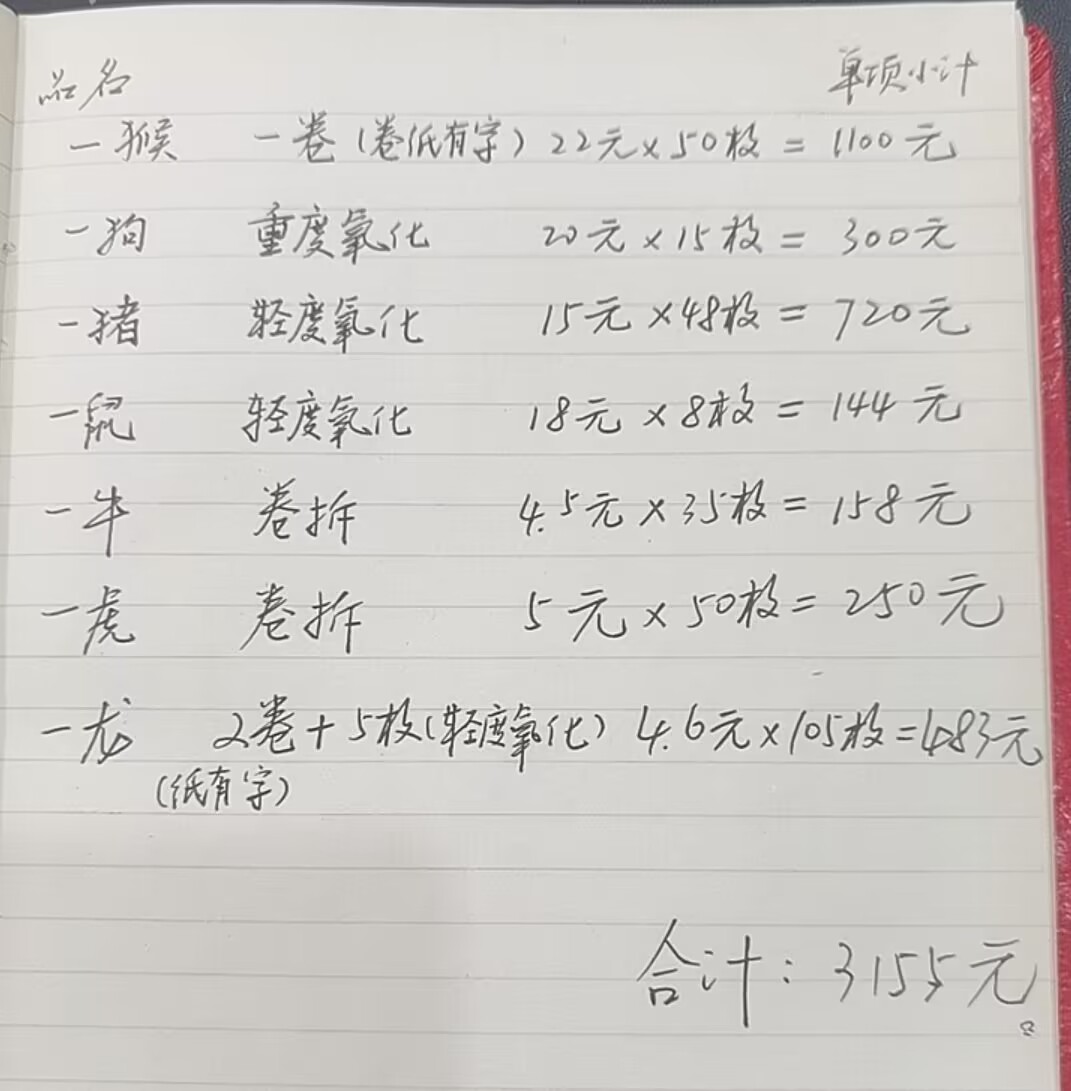 品名 单项小计
一猴 一卷(卷纸有字) 22元×50枚=1100元
一狗 重度氧化 20元×15枚=300元
一猪 轻度氧化 15元×48枚=720元
一鼠 轻度氧化 18元×8枚=144元
一牛 卷拆 4.5元×35枚=158元
一虎 卷拆 5元×50枚=250元
一龙 2卷+5枚(轻度氧化) 4.6元×105枚=483元
(纸有字)
合计: 3155元